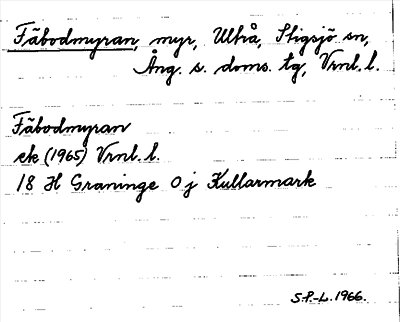 Fäbodmyran, myr, Utrå, Stigsjö sn,
Ång. s. doms. tg, Vrnl. l.
Fäbodmyran
ek (1965) Vrnl. l.
18 H Graninge 0 j Kullarmark
S.P.-L. 1966.